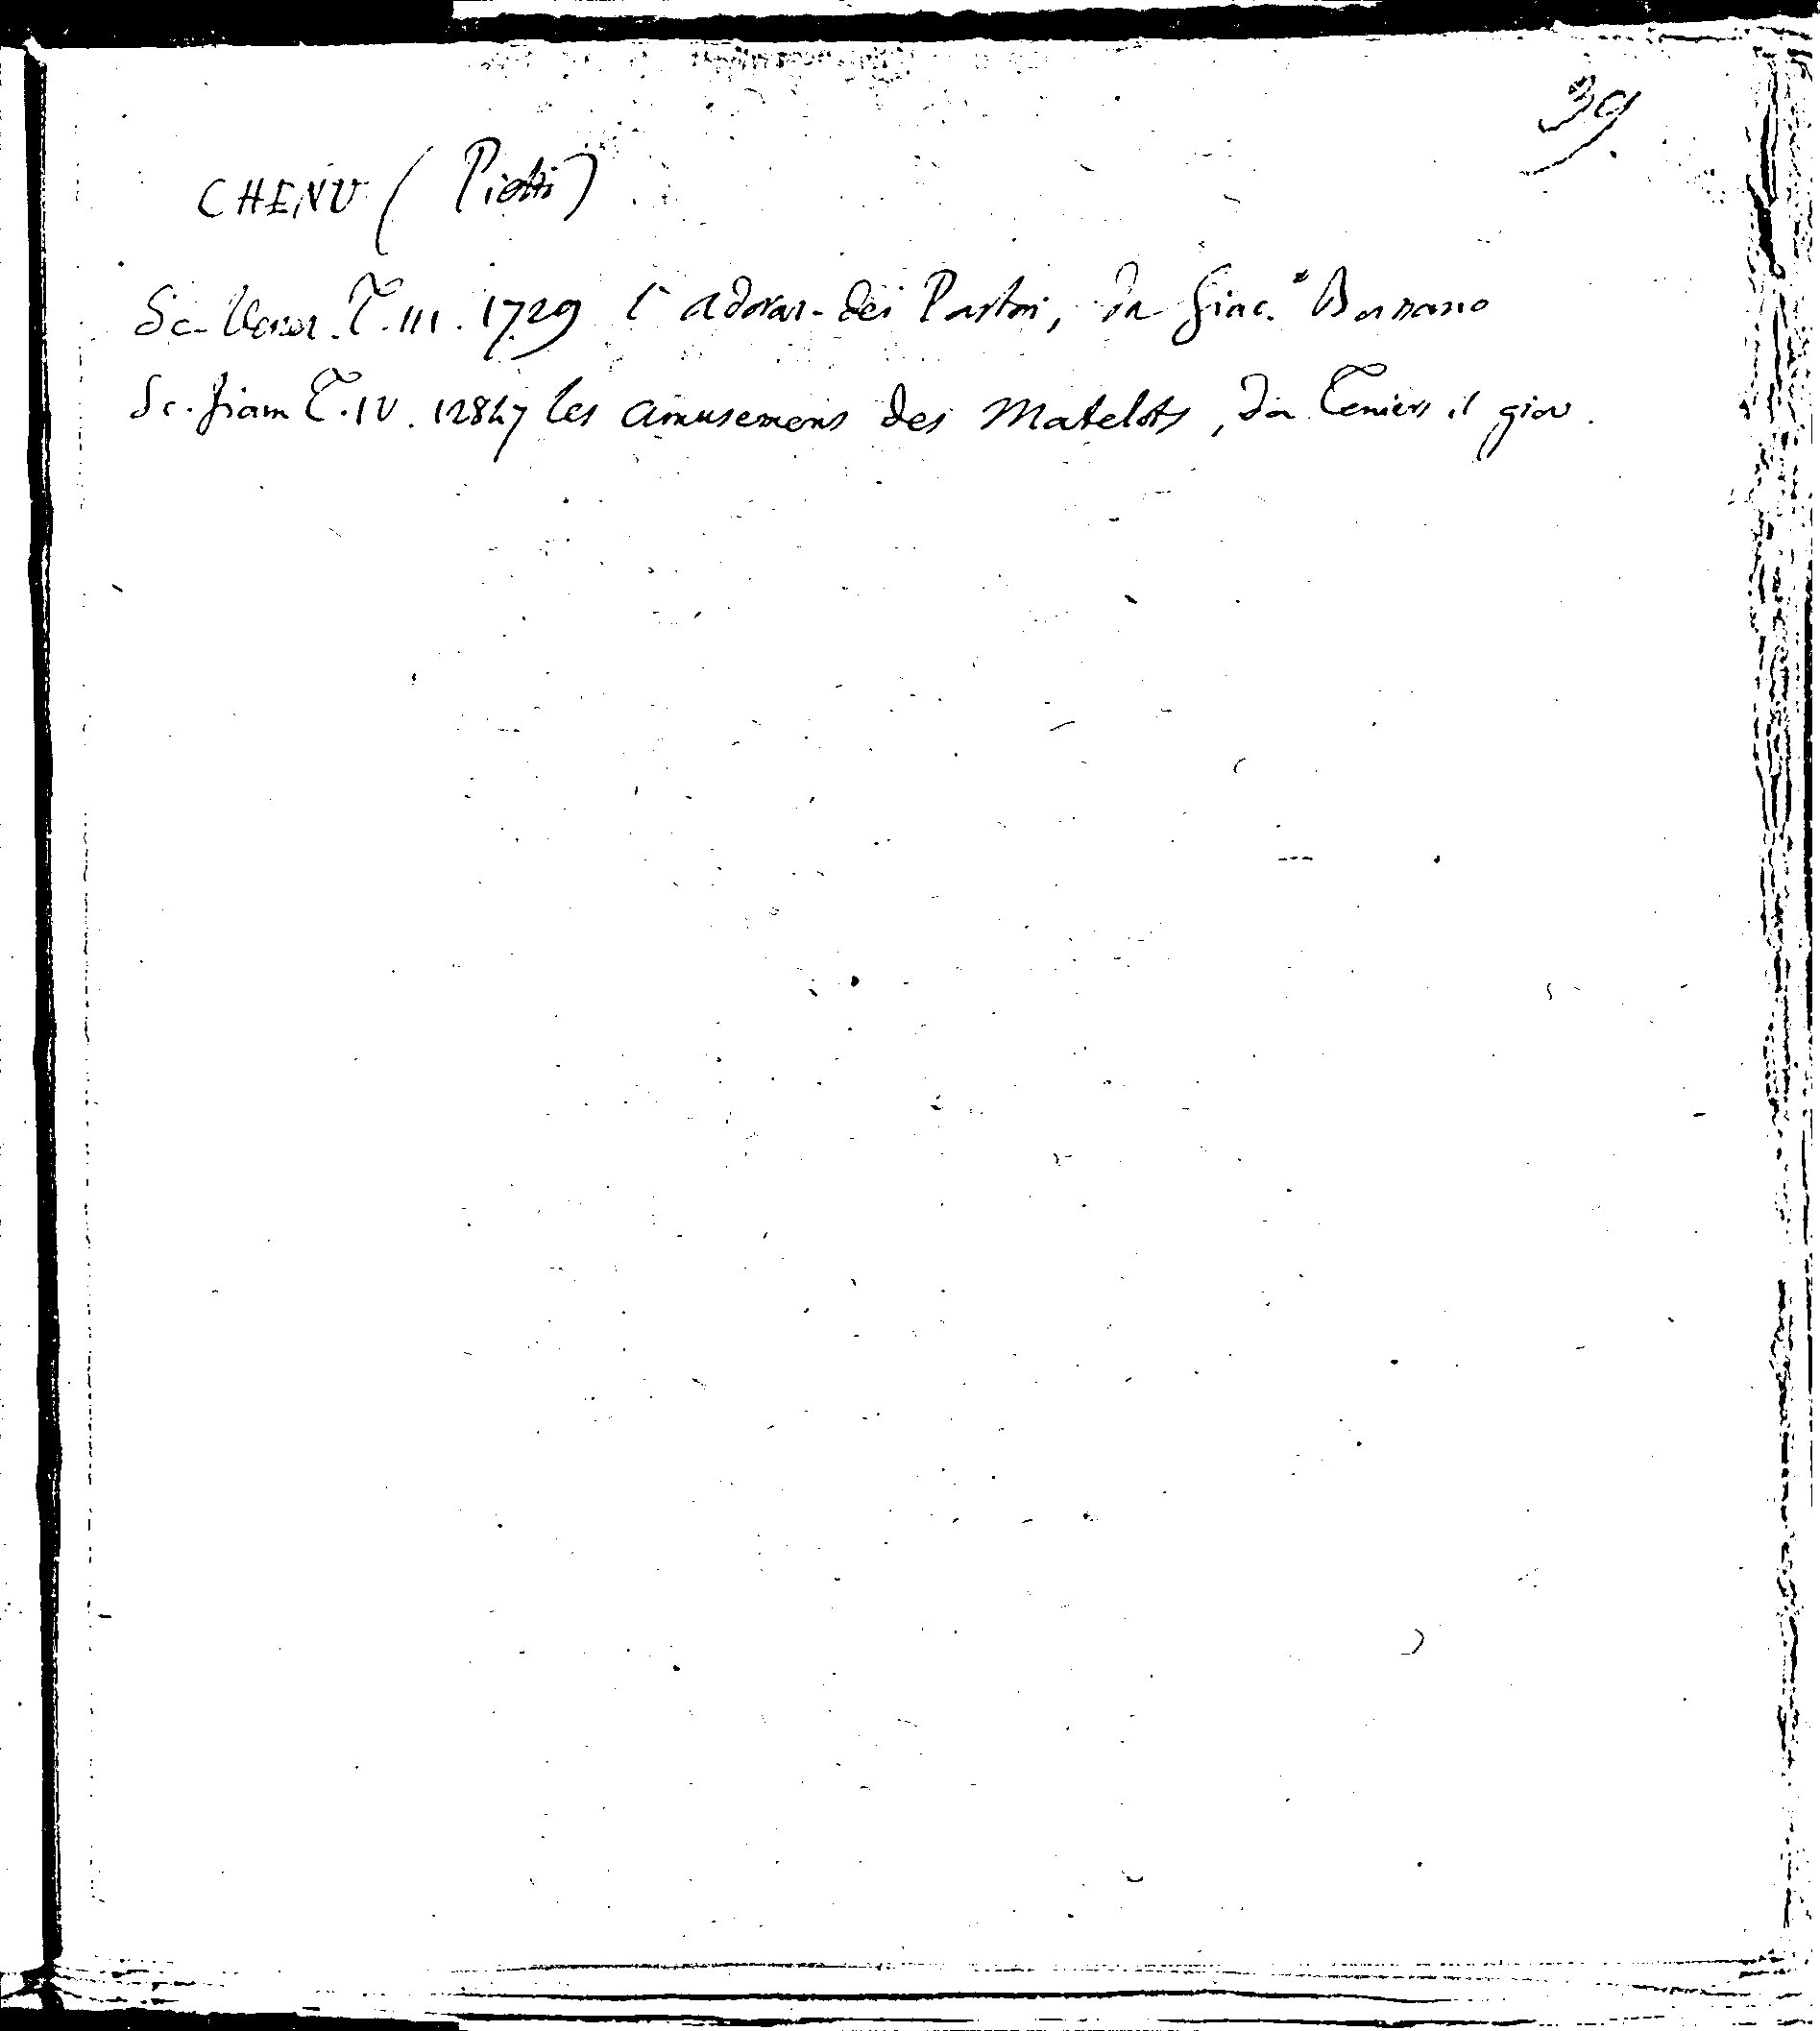 39
CHENU (Pietro)
Sc. Venez. T. III. 1729 l'Adoraz. dei Pastori, da Giac. Bassano
Sc. fiam T. IV. 12847 les amusemens des Matelots, da Teniers il giov.